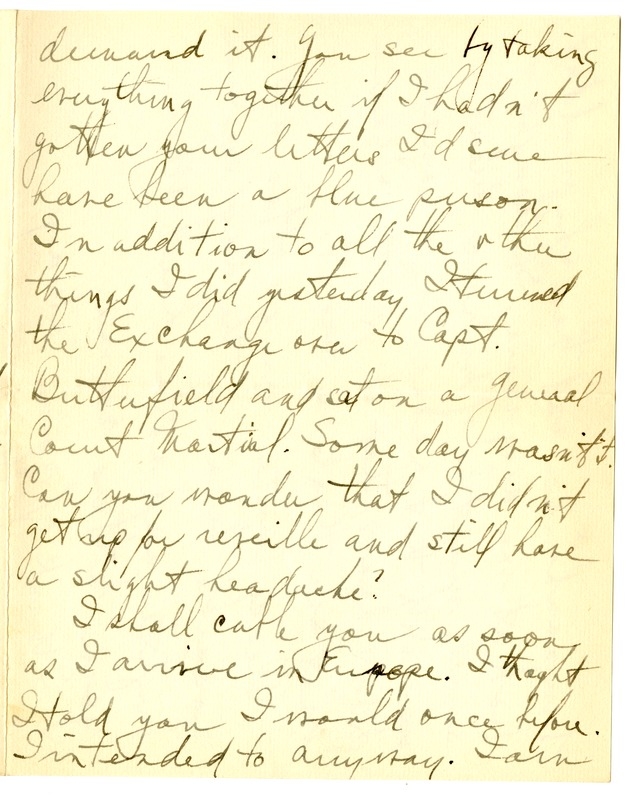 demand it. You see by taking
everything together if I hadn't
gotten your letters I'd sure
have been a blue person.
In addition to all the other
things I did yesterday I turned
the Exchange over to Capt.
Butterfield and sat on a General
Court Martial. Some day wasn't it.
Can you wonder that I didn't
get up for reveille and still have
a slight headache?
I shall cable you as soon
as I arrive in Europe. I thaght
I told you I would once before.
I intended to anyway. I am